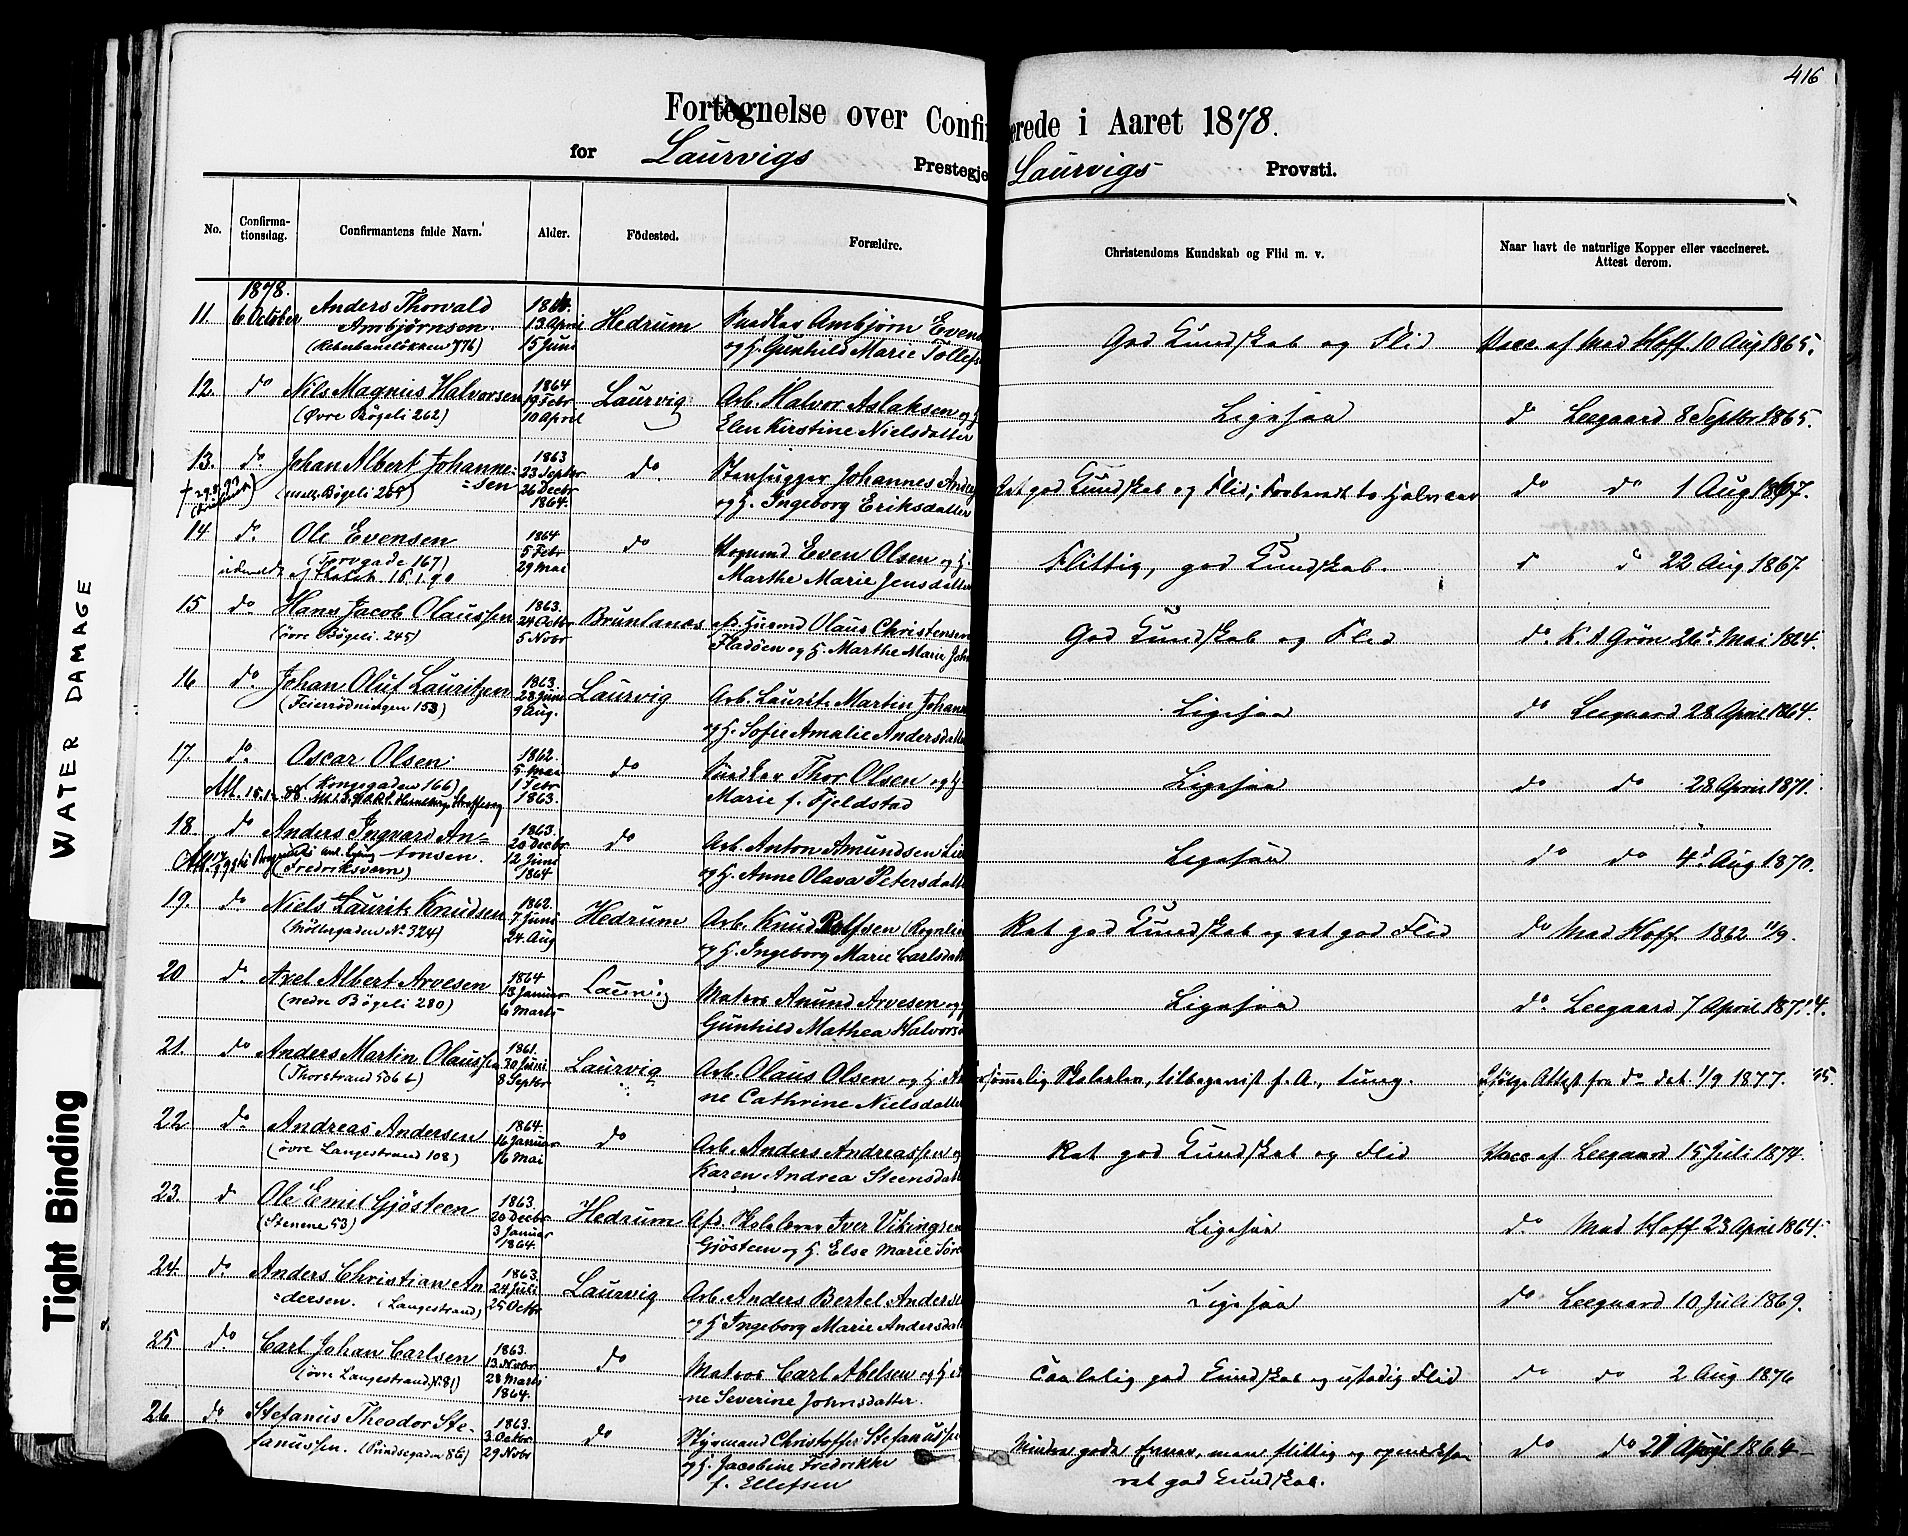 416
Fortegnelse over Confirmerede i Aaret 1878.
for Laurvigs Prestegje Laurvigs Provsti.
No. Confirma-tionsdag. Confirmantens fulde Navn. Alder. Födested. Forældre. Christendoms Kundskab og Flid m. v. Naar havt de naturlige Kopper eller vaccineret. Attest derom.
1878.
11. 6 October Anders Thorvald 13 April Hedrum Ambjørn Evens God Kundskab og Flid Vacc af Mad Hoff 10 Aug 1865.
Ambjörnsen. 15 Juni og H. Gunhild Marie Tollefs
12. do Nils Magnus Halvorsen 1864 19 Febr Laurvig Arb. Halvor Aslaksen og H. Ligesaa do Leegaard 8 Septbr 1865.
(Øvre Bøgeli 262) 10 April Elen Kirstine Nielsdatter
13. do. Johan Albert Johanne- 1863 23 Septbr do. Stenhugger Johannes Ret god Kundskab og Flid; do do 1 Aug 1867.
=sen 26 Decbr 1864. og H. Ingeborg Eriksdatter
14 do. Ole Evensen 1864 5 Febr do Even Olsen og H. Flittig, god Kundskab. 22 Aug 1867.
(Torvgade 167) 29 Mai Marthe Marie Jensdatter
15 do Hans Jacob Olaussen 1863. 24 Octbr Brunlanes Olaus Christensen God Kundskab og Flid do. K. A Grøn 26d Mai 1864.
(övre Bögeli. 245) 5 Novbr og H. Marthe Marie Joh
16 do. Johan Oluf Lauritzen 1863. 28 Juni Laurvig Arb. Laurits Martin Johann Ligesaa do Leegaard 28 April 1864.
9 Aug. og H. Sofie Amalie Andersdatt
17. do. Oscar Olsen. 1862. 5 Mai do Thor Olsen og H. Ligesaa do do 28 April 1871.
(Kongegaden 166) 1 Febr 1863. Marie f. Fjeldstad
18. do Anders Ingvard An- 1863. 20 Decbr do Arb. Anton Amundsen Ligesaa do do 4d Aug 1870.
tonsen. (Fredriksvern) 12 Juni 1864 og H. Anne Olava Petersdatt
19. do Niels Laurits Knudsen 1862. 7 Juni Hedrum Arb. Knud Rolfsen Ret god Kundskab og ret god Flid do Mad Hoff 1862 11/9.
(Möllergaden No. 324) 24. Aug og H. Ingeborg Marie Carlsdatt
20 do. Axel Albert Arvesen 1864 13 Januar Laurvig Matros Anund Arvesen og H Ligesaa do. Leegaard 7 April 187
(nedre Bögeli 280) 6 Marts Gunhild Mathea Halvorsd
21. do Anders Martin Olaussen 1861. 30 Juni Laurvig Arb. Olaus Olsen og H. An Skoleelev, tilbagevist f. A., tung. ifölge Attest fra do dat 1/9 1877.
(Thorstrand 506 b) 8 Septbr ne Cathrine Nielsdatter
22 do. Andreas Andersen 1864. 16 Januar do Arb. Anders Andreassen Ret god Kundskab og Flid Vacc af Leegaard 15 Juli 1874.
(övre Langestrand 108) 16 Mai Karen Andrea Steensdatt
23. do Ole Emil Gjösteen 1863. 20 Decbr Hedrum Afd. Skolelærer Iver Vikingsen Ligesaa do Mad Hoff 23 April 1864.
(Stenene 53) 3 Januar 1864. Gjösteen og H. Else Marie Sör
24. do. Anders Christian An 1863. 24 Juli Laurvig Arb. Anders Bertel Anders Ligesaa do Leegaard 10 Juli 1869.
=dersen. (Langestrand) 25 Octbr og H Ingeborg Marie Andersdatt
25 do. Carl Johan Carlsen 1863. 13 Novbr do Matros Carl Abelsen og H. Taalelig god Kundskab og ustadig Flid do do 2 Aug 1876
(övre Langestrand No. 81) 28 Marts 1864. ne Severine Johnsdatter.
26 do Stefanus Theodor Ste- 1863. 3 Octbr. do Styrmand Christoffer Stefanussen Mindre gode Evner, men flittig og do do 21 April 1864
fanussen. (Prindsegaden 86) 29 Novbr og H. Jacobine Fredrikke ret god Kundskab.
f. Ellefsen
WATER DAMAGE
Tight Binding